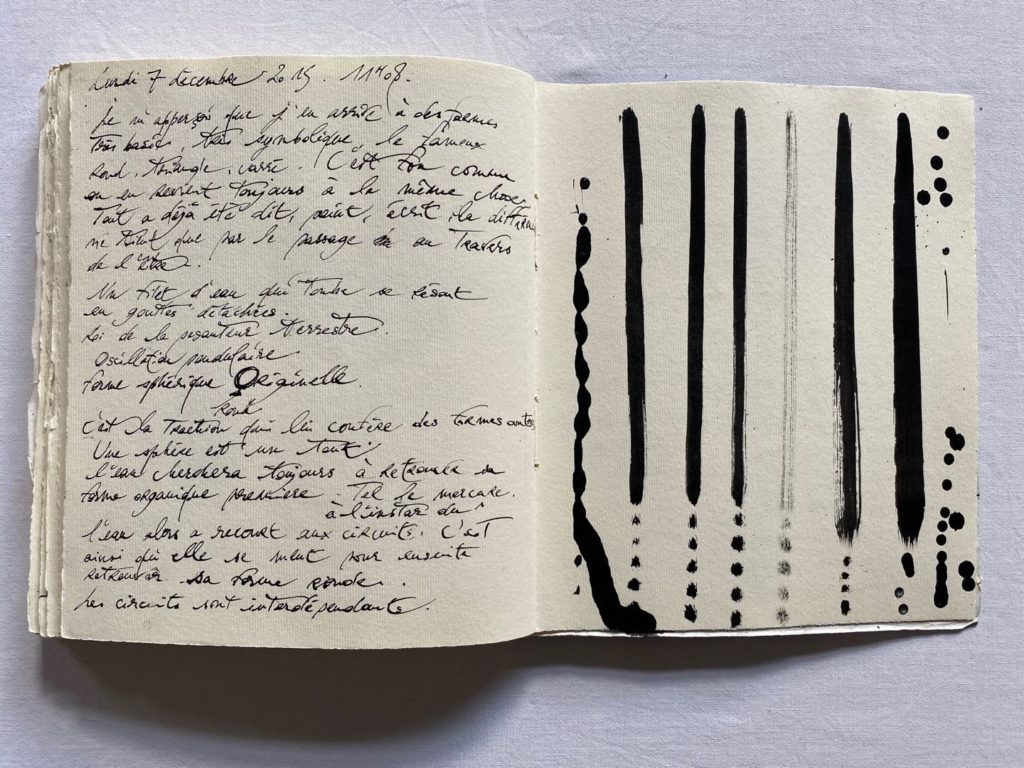 Lundi 7 décembre 2015. 11H08.
je m'apperçois que j'en arrive à des formes
très basiq, très symbolique, le fameux
Rond, triangle, carré. C'est fou comme
on en revient toujours à la même chose,
Tout a déjà été dit, peint, écrit, la différence
ne tient que par le passage au travers
de l'être.
Un filet d'eau qui tombe se résout
en gouttes détachées.
Loi de la pesanteur terrestre.
Oscillation pendulaire
forme sphérique Originelle.
Ronde
c'est la traction qui lui confère des formes
Une sphère est un tout.
l'eau cherchera toujours à retrouver sa
forme organique première. Tel le mercure.
à l'instar du
l'eau alors a recourt aux circuits. C'est
ainsi qu'elle se meut pour ensuite
retrouver sa forme ronde.
Les circuits sont interdépendants.